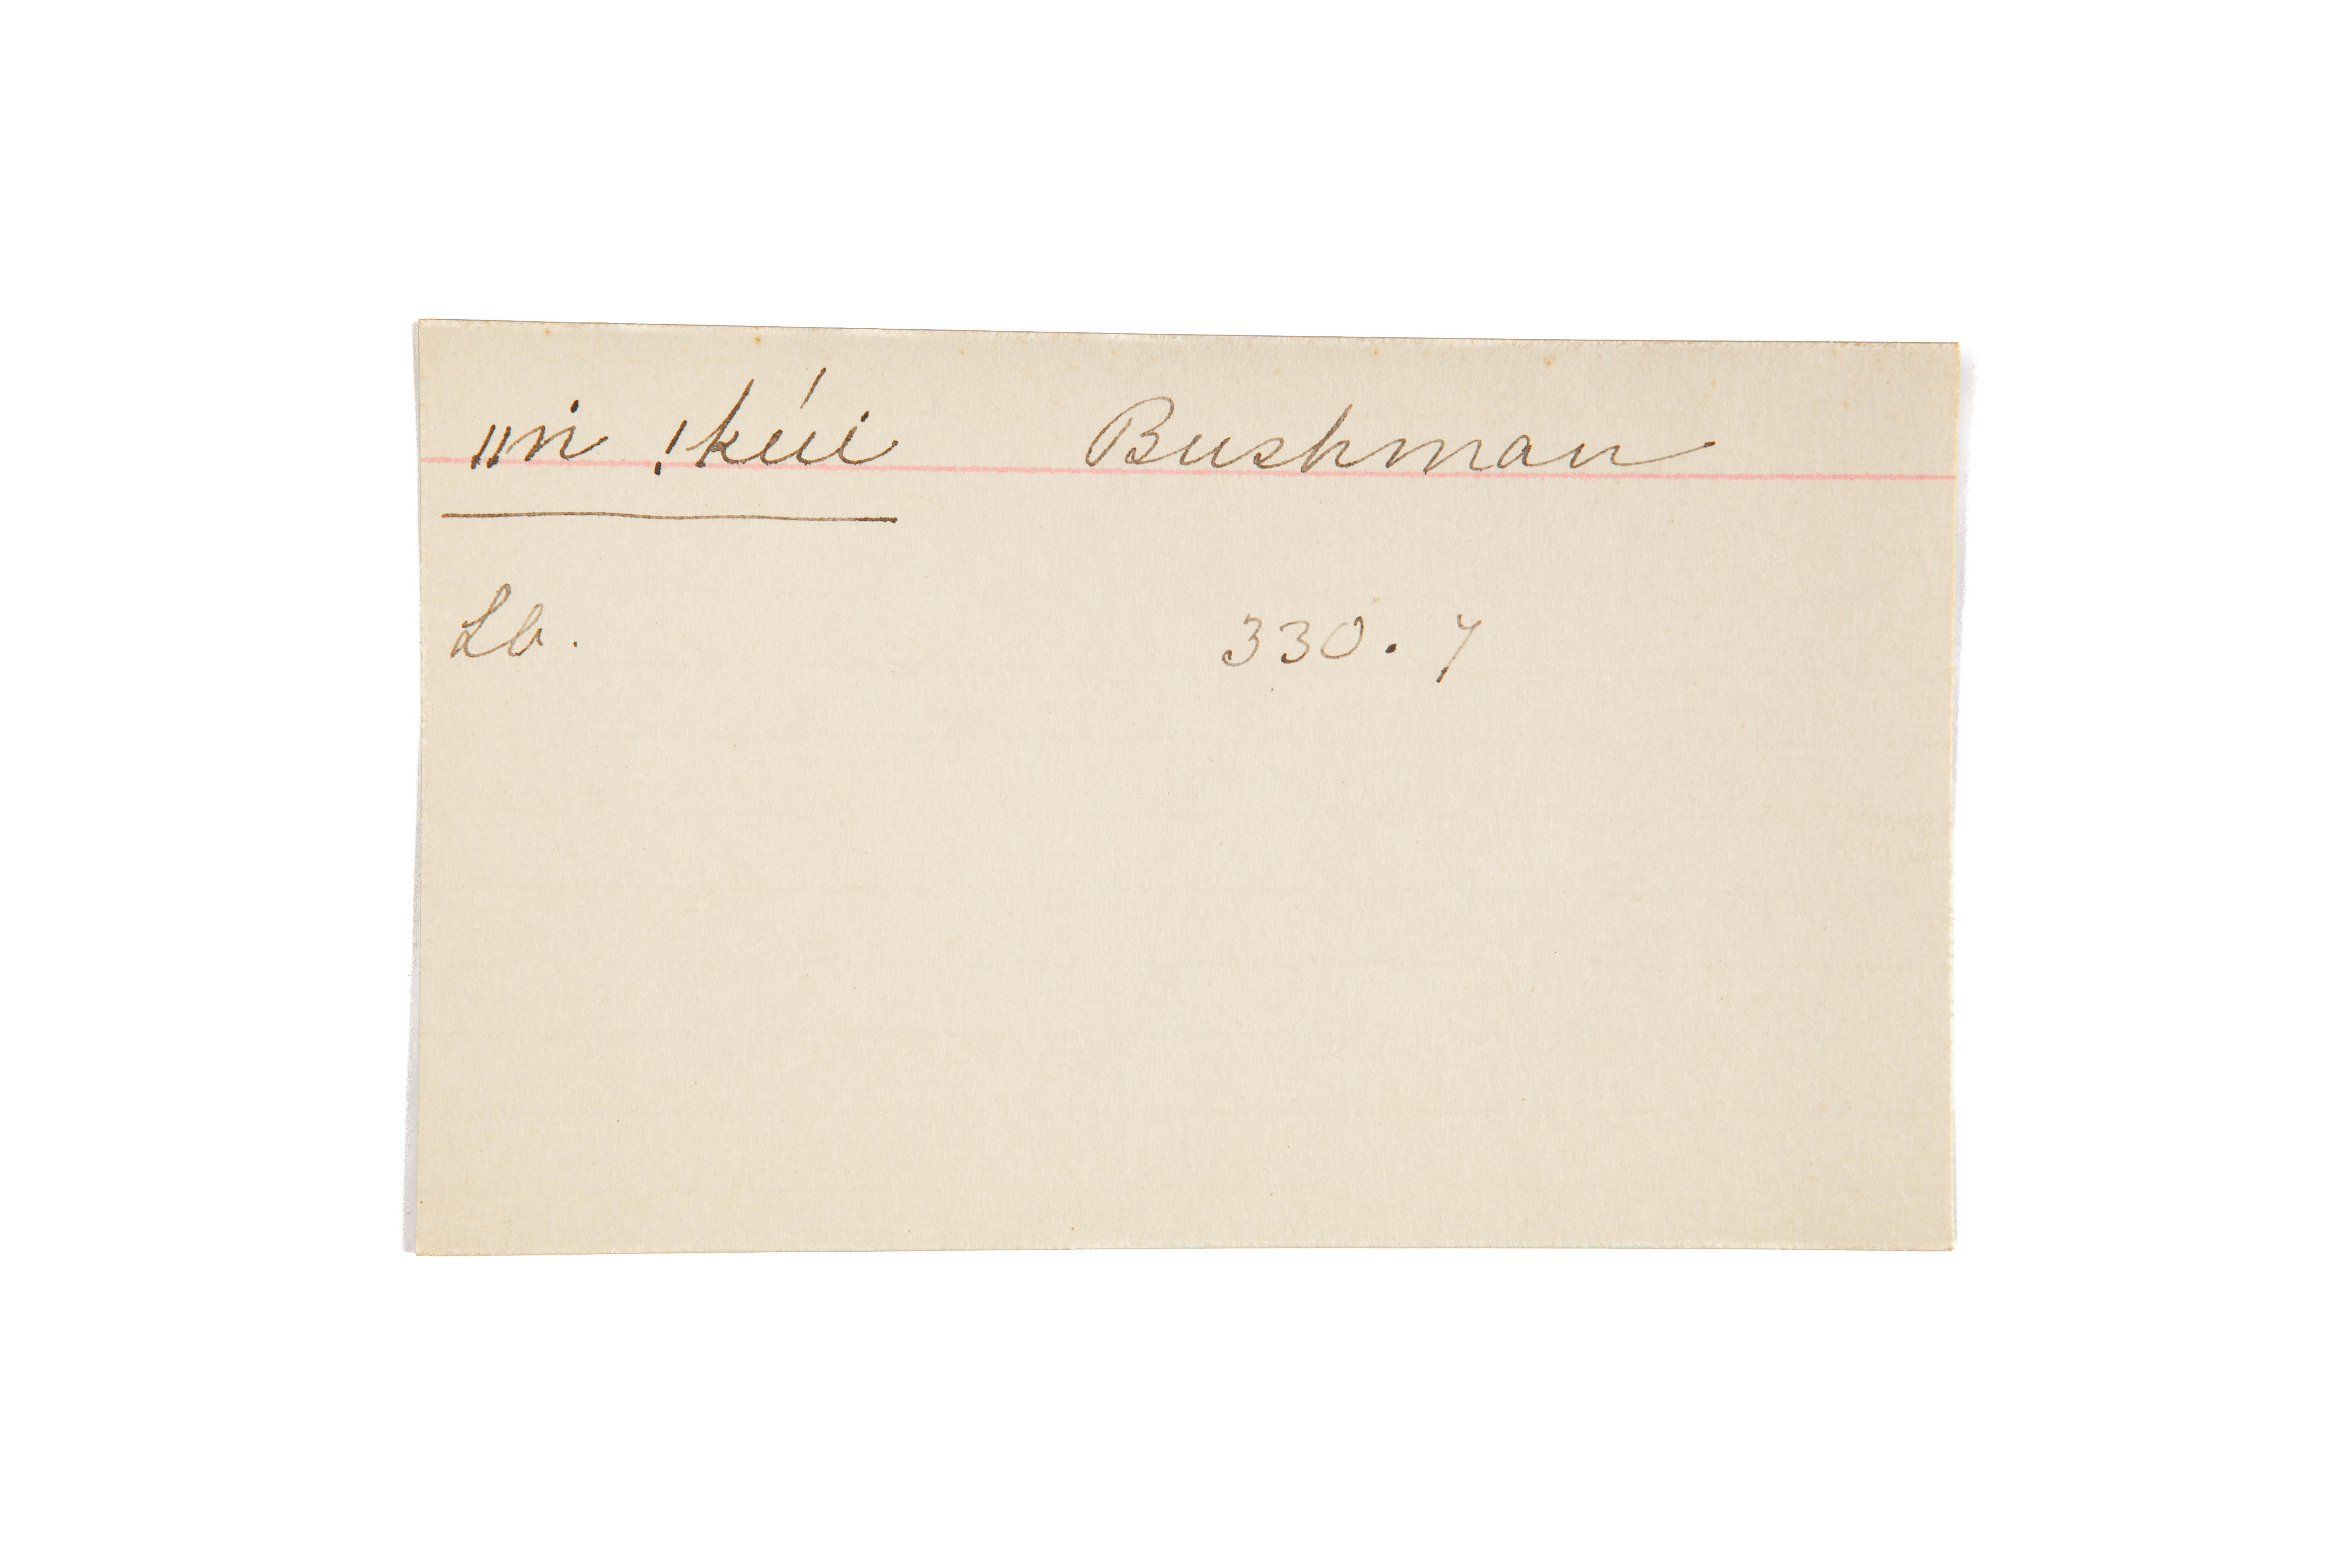 ǁni !kúi Bushman
Lb. 330. 7